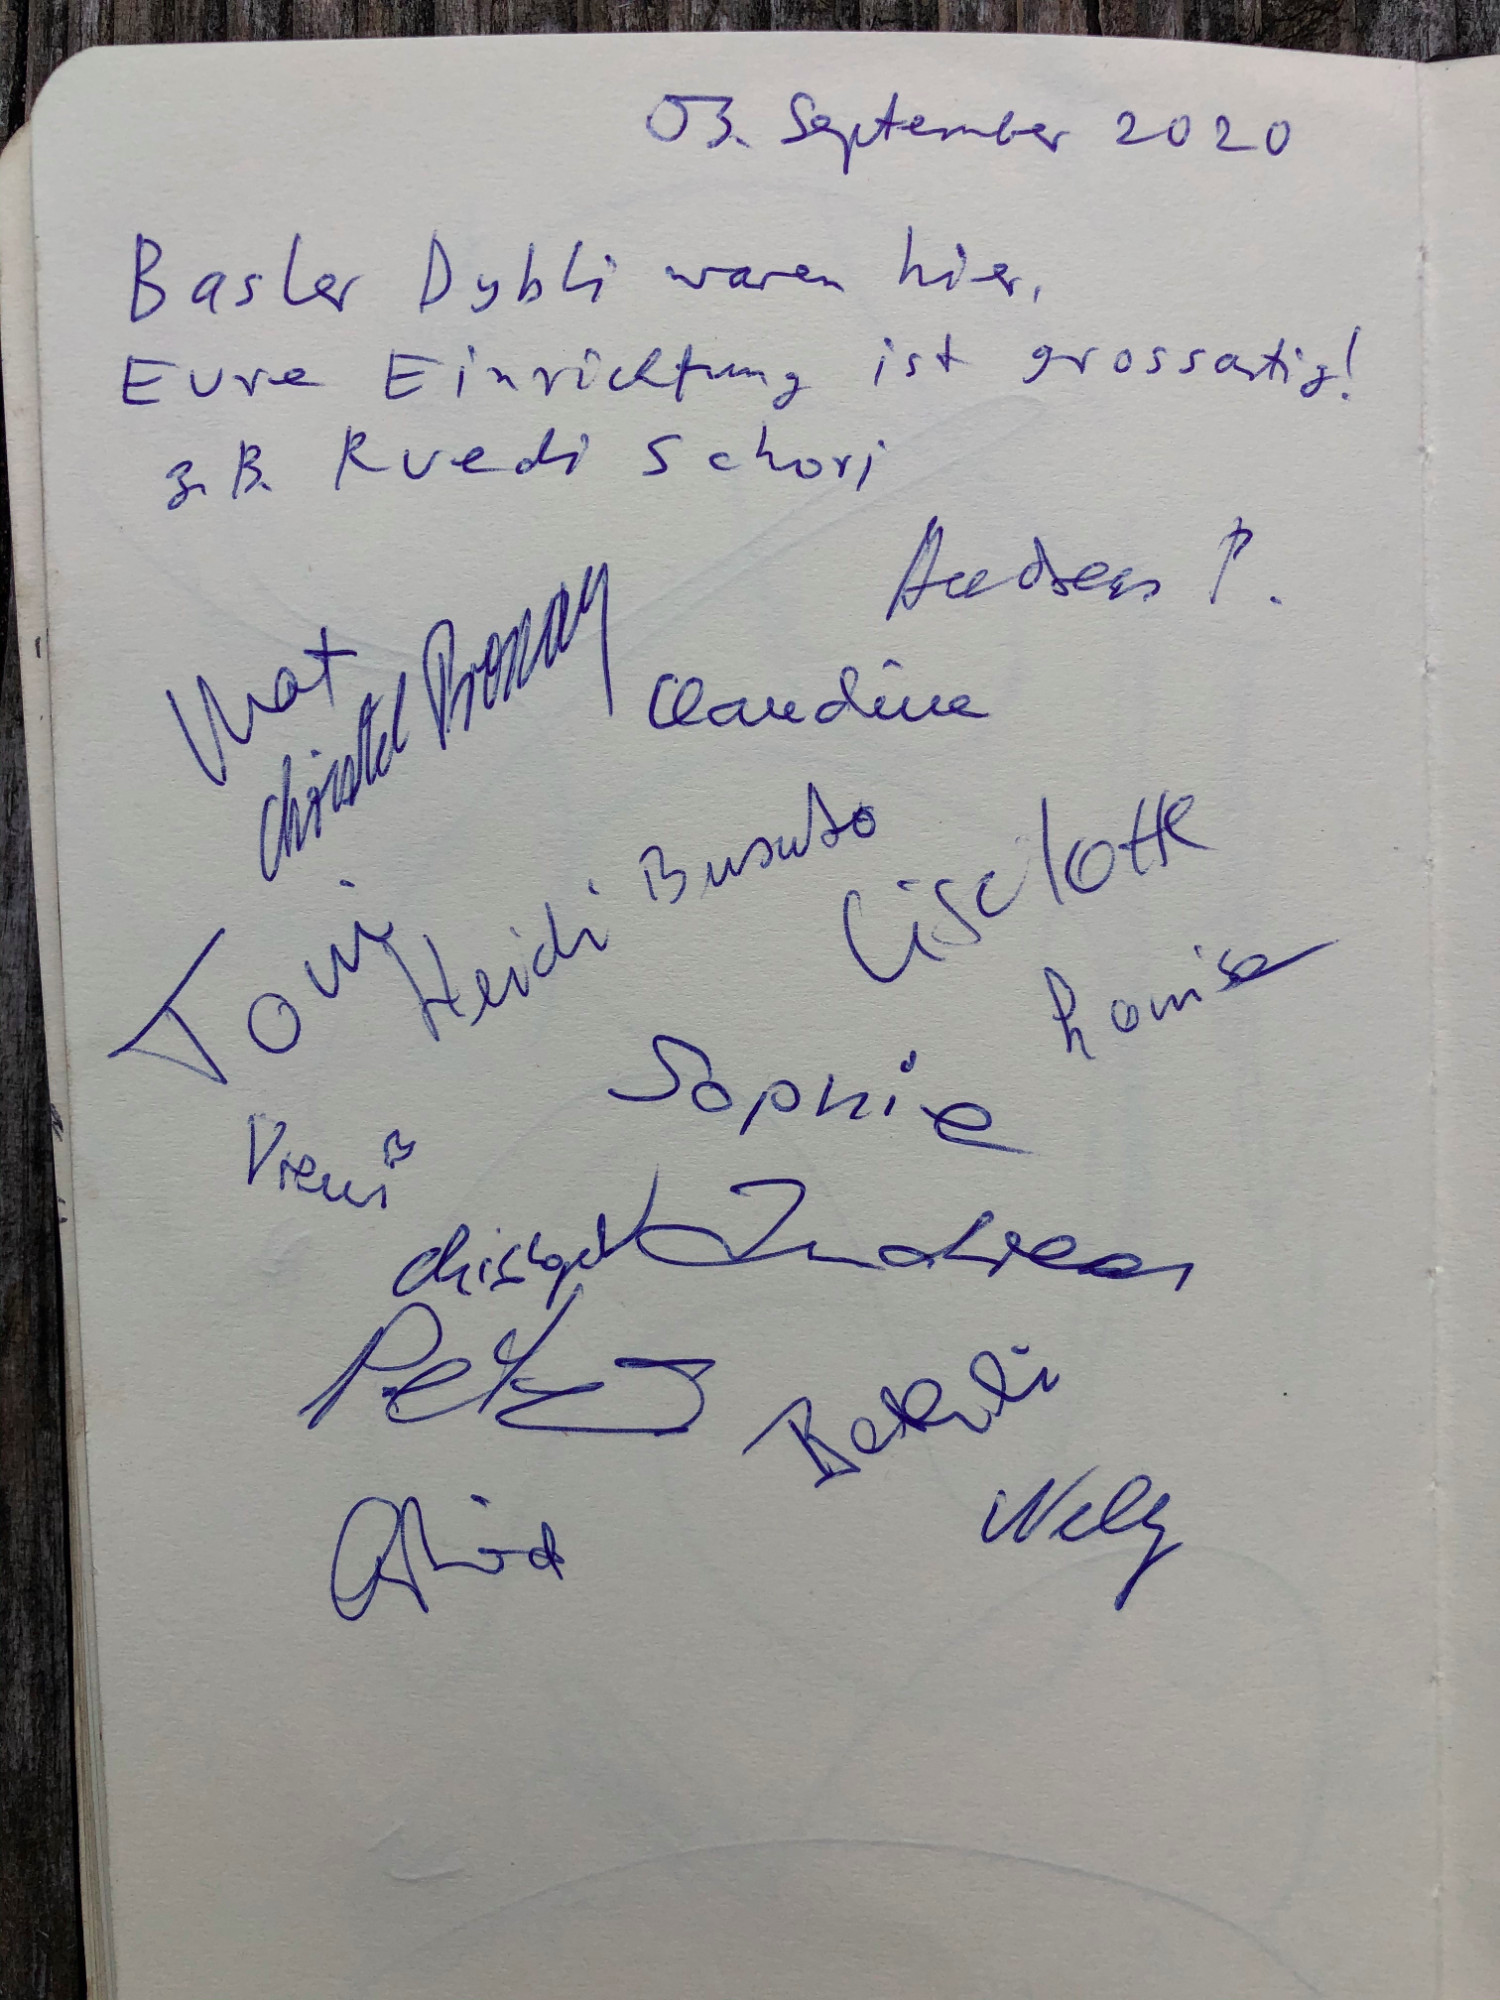 03. September 2020
Basler Dybli waren hier,
Eure Einrichtung ist grossartig!
z.B. Ruedi Schori
Andreas P.
Mat
Christel
Claudine
Heidi
Liselotte
Toni
Louise
Sophie
Vreni
Christoph Andreas
Peter
Nelly